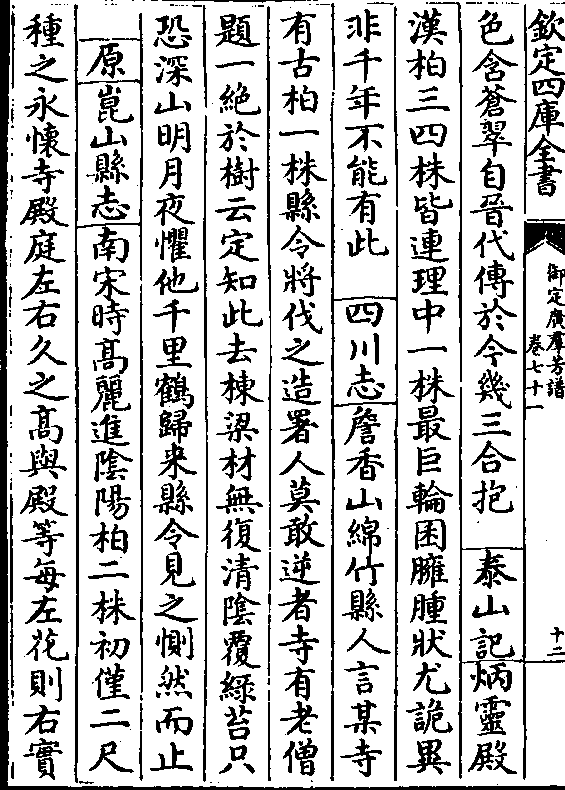 欽定四庫全書
御定廣羣芳譜
卷七十一
十二
色含蒼翠自晉代傳於今幾三合抱　泰山記炳靈殿
漢柏三四株皆連理中一株最巨輪囷臃腫狀尤詭異
非千年不能有此　四川志詹香山綿竹縣人言某寺
有古柏一株縣令將伐之造署人莫敢逆者寺有老僧
題一絶於樹云定知此去棟梁材無復清隂覆緑苔只
恐深山明月夜懼他千里鶴歸來縣令見之惻然而止
原崑山縣志南宋時髙麗進隂陽柏二株初僅二尺
種之永懷寺殿庭左右久之髙與殿等每左花則右實